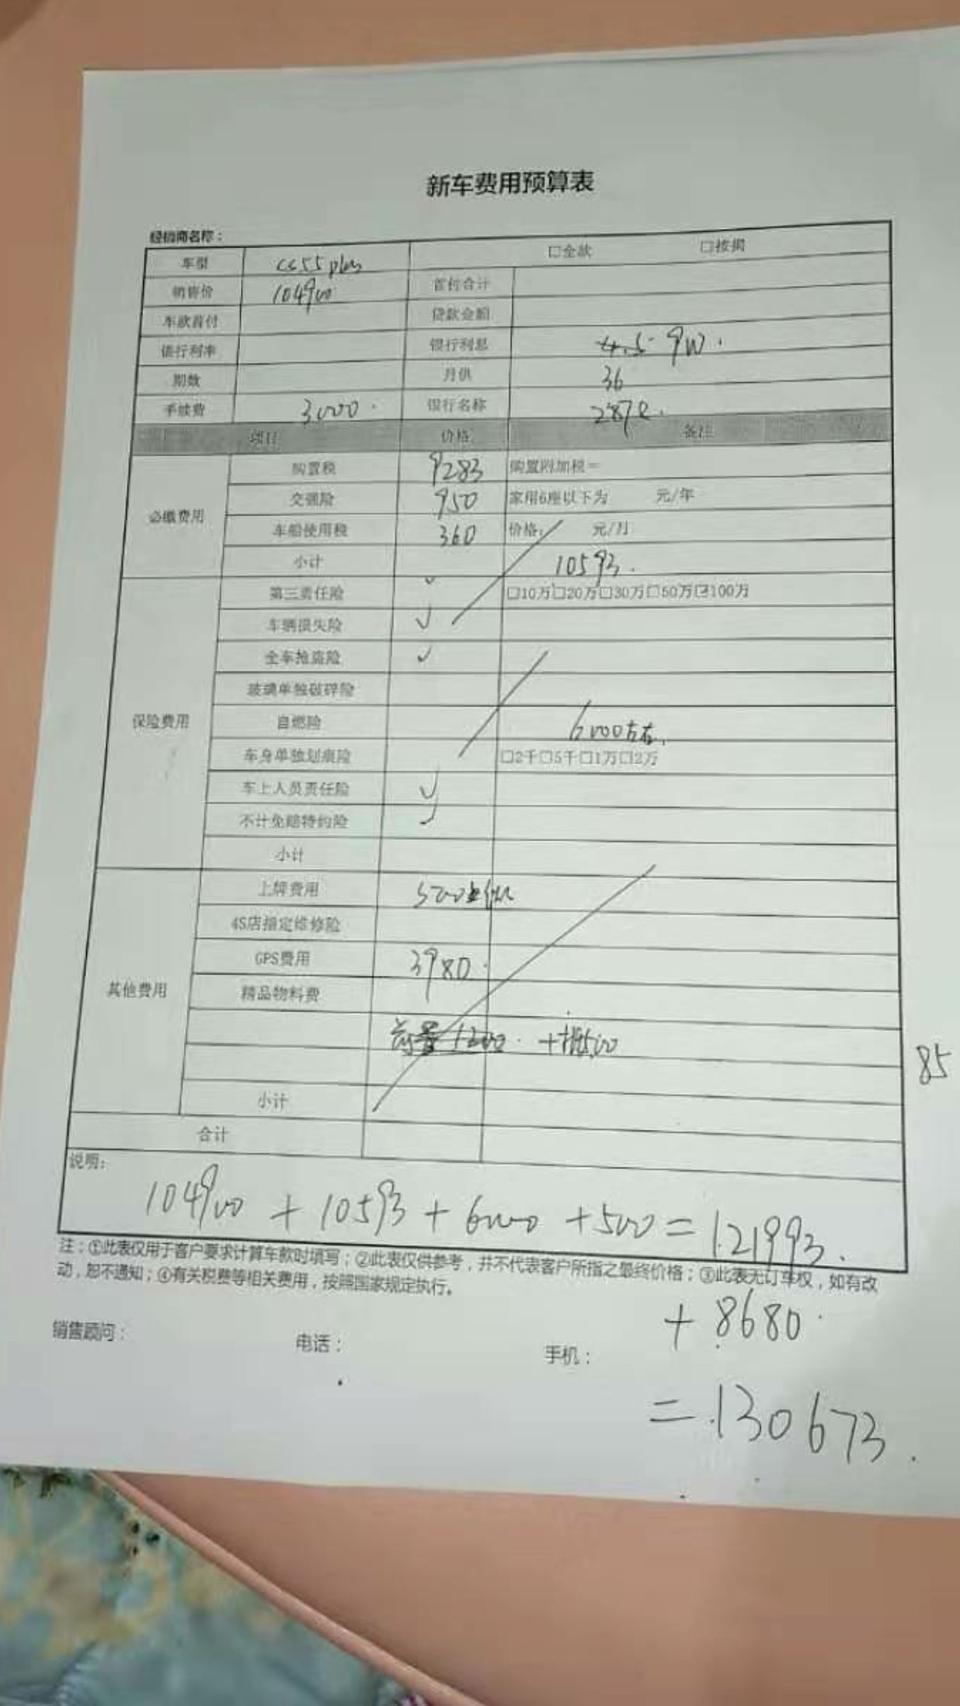 新车费用预算表
经销商名称：
车型 cs55 plus □全款 □按揭
销售价 104900 首付合计
车款首付 贷款金额
银行利率 银行利息 9W.
期数 月供 36
手续费 3000. 银行名称
项目 价格 备注
必缴费用
购置税 9283 购置附加税=
交强险 950 家用6座以下为 元/年
车船使用税 360 价格: 元/月
小计 10593.
保险费用
第三责任险 ✓ □10万□20万□30万□50万☑100万
车辆损失险 ✓
全车抢盗险 ✓
玻璃单独破碎险
自燃险 6000左右.
车身单独划痕险 □2千□5千□1万□2万
车上人员责任险 ✓
不计免赔特约险 ✓
小计
其他费用
上牌费用 500
4S店指定维修险
GPS费用 3980.
精品物料费
小计
合计
说明:
104900 + 10593 + 6000 + 500 = 121993.
注：①此表仅用于客户要求计算车款时填写；②此表仅供参考，并不代表客户所指之最终价格；③此表无订车权，如有改
动，恕不通知；④有关税费等相关费用，按照国家规定执行。
+ 8680.
销售顾问： 电话： 手机：
= 130673.
85